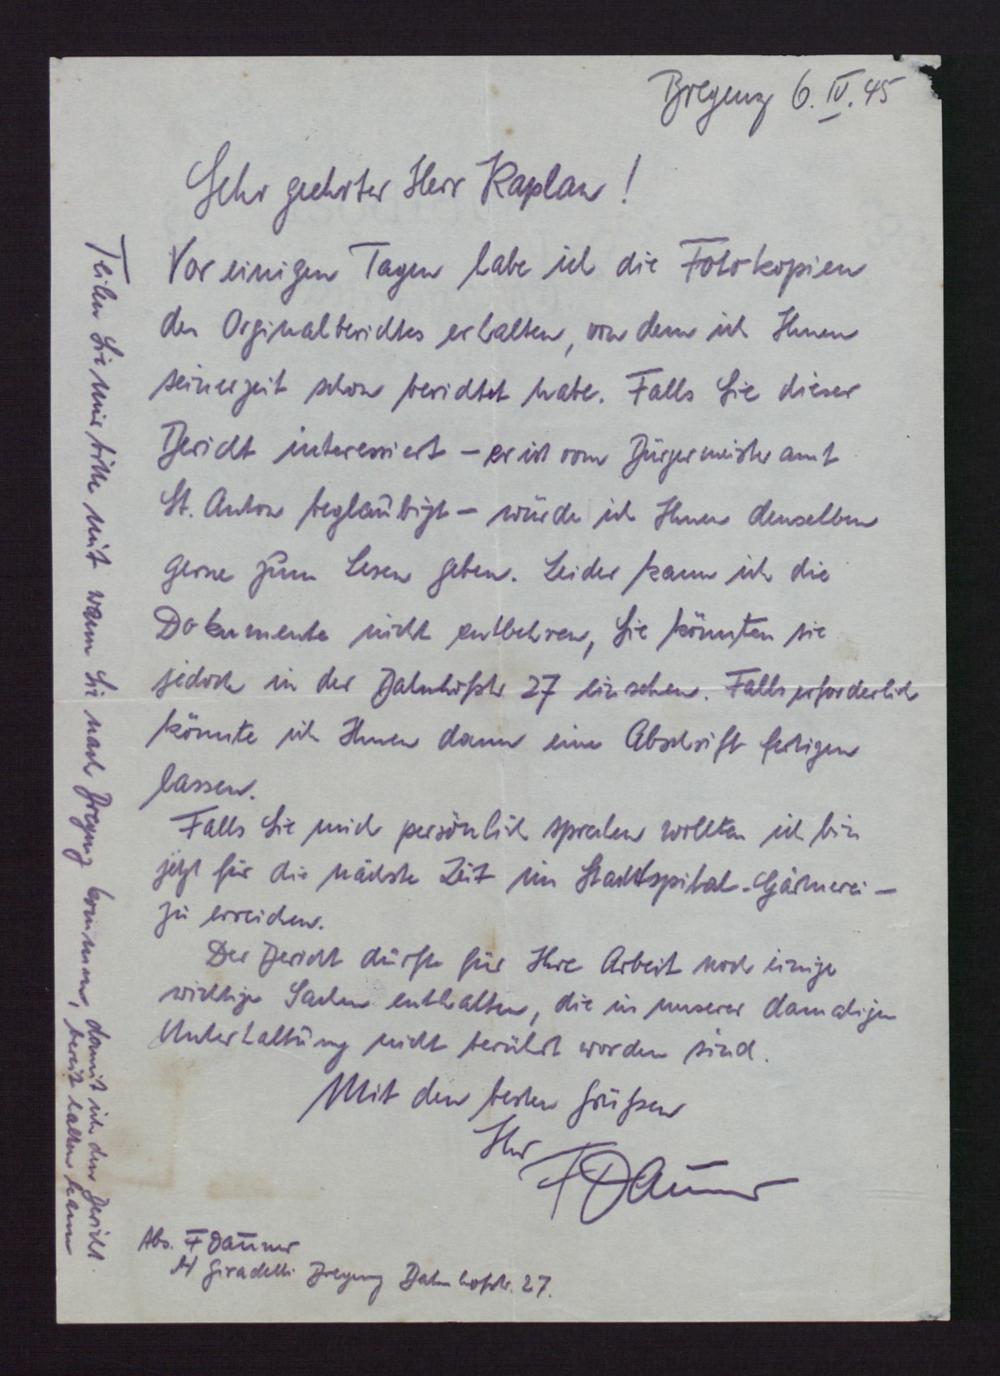 Bregenz 6. IV. 45
Sehr geehrter Herr Kaplan!
Vor einigen Tagen habe ich die Fotokopien
des Orginalberichtes erhalten, von dem ich Ihnen
seinerzeit schon berichtet habe. Falls Sie dieser
Bericht interessiert – er ist vom Bürgermeisteramt
St. Anton beglaubigt – würde ich Ihnen denselben
gerne zum Lesen geben. Leider kann ich die
Dokumente nicht entbehren, Sie könnten sie
jedoch in der Bahnhofstr 27 einsehen. Falls erforderlich
könnte ich Ihnen dann eine Abschrift fertigen
lassen.
Falls Sie mich persönlich sprechen wollten ich bin
jetzt für die nächste Zeit im Stadtspital-Gärtnerei –
zu erreichen.
Der Bericht dürfte für Ihre Arbeit noch einige
wichtige Sachen enthalten, die in unserer damaligen
Unterhaltung nicht berührt worden sind.
Mit den besten Grüßen
Ihr
F Dauner
Abs. F Dauner
Giradelli Bregenz Bahnhofstr. 27.
Teilen Sie mir bitte mit wann Sie nach Bregenz kommen, damit ich den Bericht
bereit halten kann